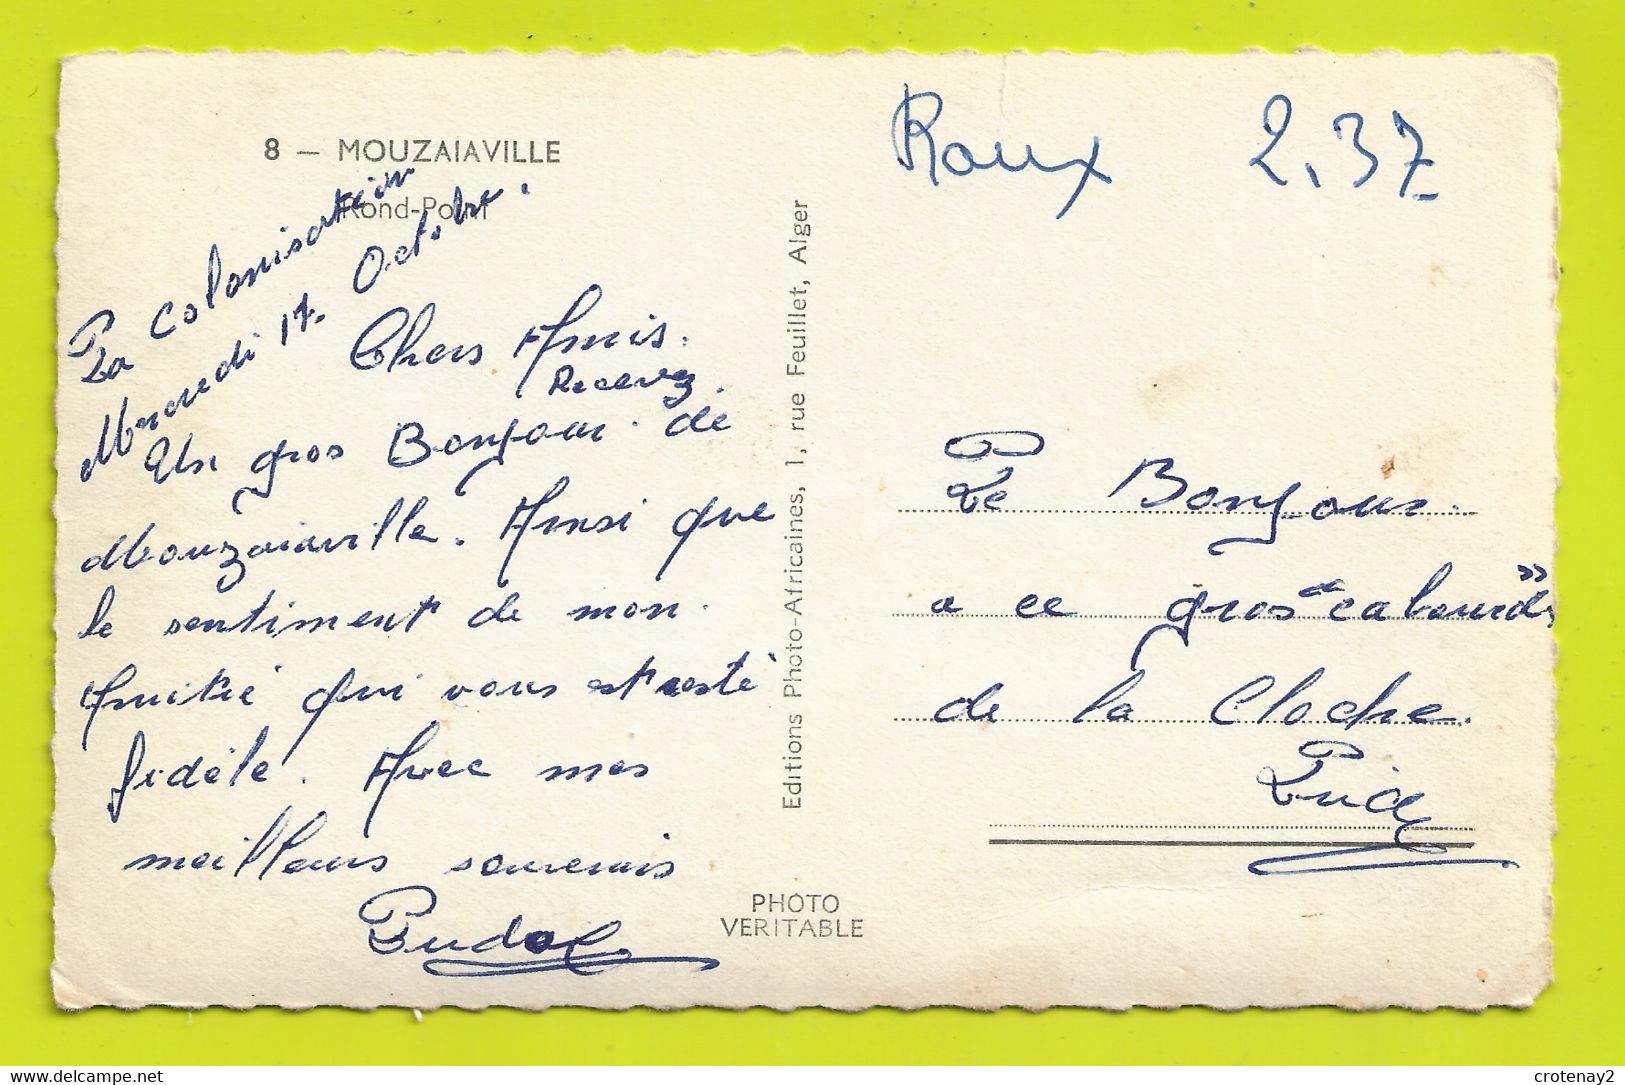 8 — MOUZAIAVILLE
Rond-Point
La Colonisation
Mercredi 17. Octobre.
Chers Amis.
Recevez
Un gros Bonjour. de
Mouzaiaville. Ainsi que
le sentiment de mon.
Amitié qui vous est resté
fidèle. Avec mes
meilleurs souvenirs
PHOTO
VERITABLE
Editions Photo-Africaines, 1, rue Feuillet, Alger
Roux 2,37
Le Bonjour.
a ce gros
de la Cloche.
crotenay2